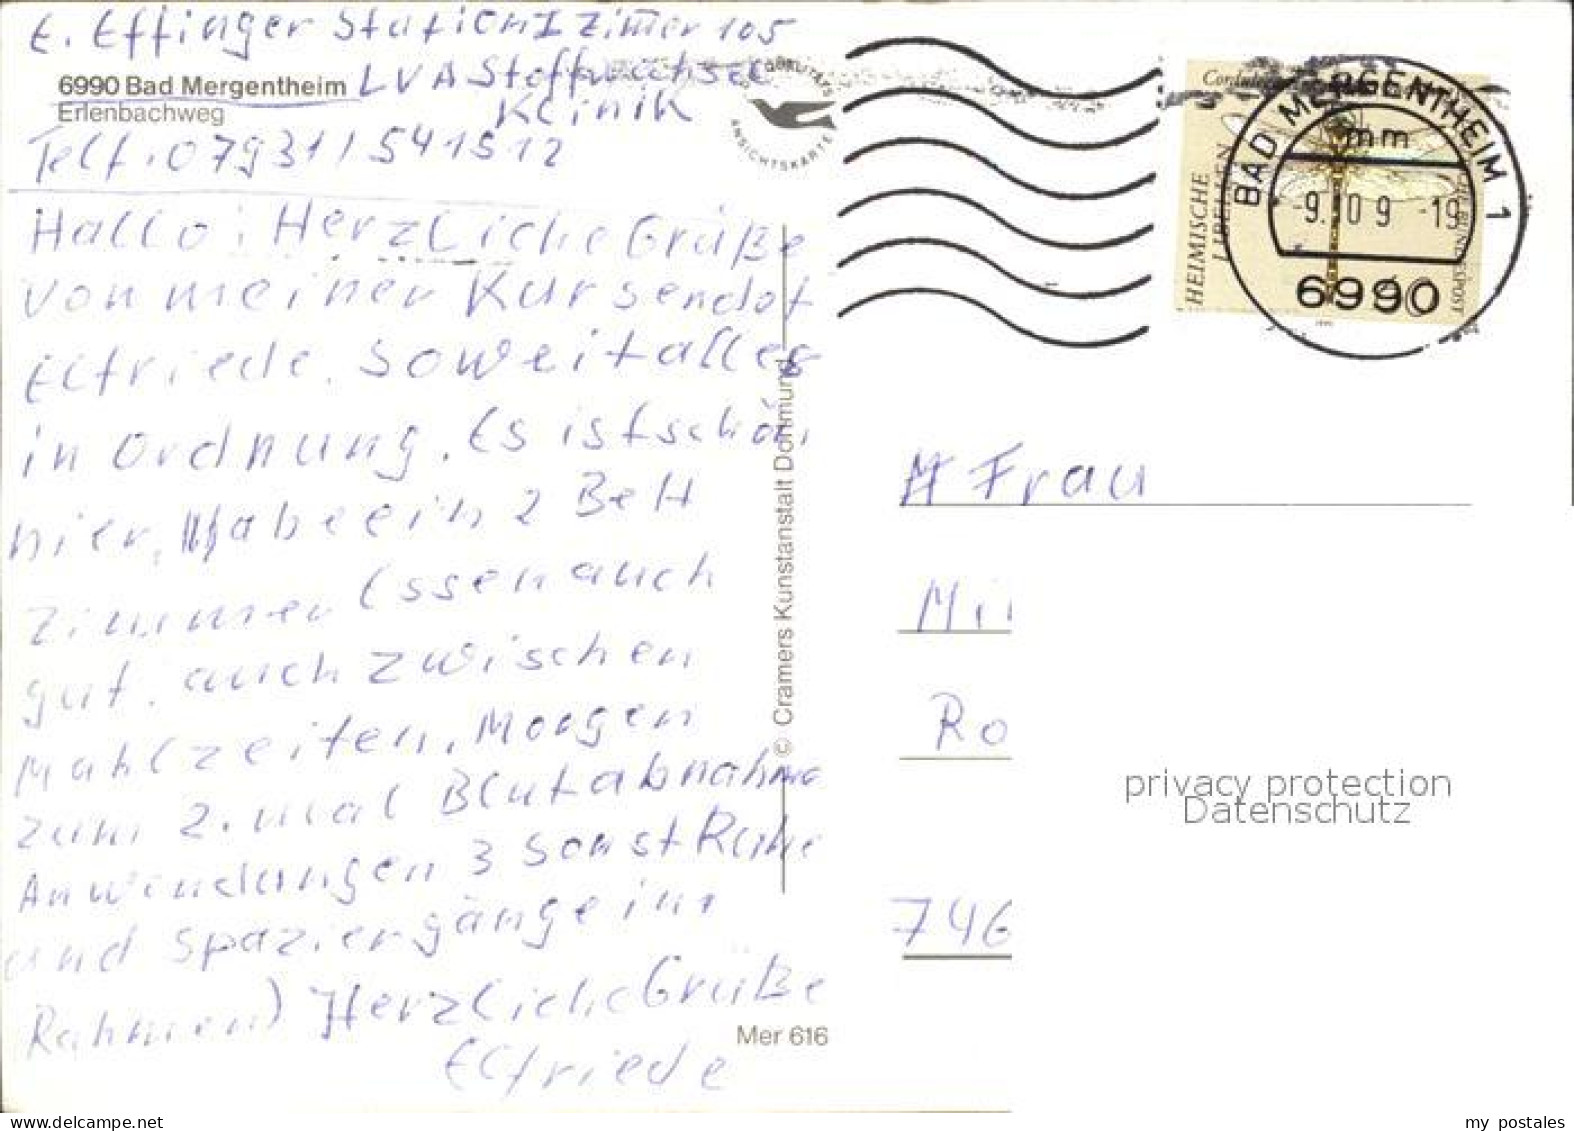 E. Effinger Station I Zimmer 105
6990 Bad Mergentheim LVA Stoffwechsel
Erlenbachweg Klinik
Telf. 07931/541512
Hallo! Herzliche Grüße
von meiner Kur sendet
Elfriede. Soweit alles
in Ordnung. Es ist schön
hier, Habe ein 2 Bett
Zimmer Essen auch
gut. auch zwischen
Mahlzeiten. Morgen
zum 2. mal Blutabnahme
Anwendungen 3 sonst Ruhe
und Spaziergänge im
Rahmen) Herzliche Grüße
Elfriede
© Cramers Kunstanstalt Dortmund
Mer 616
ANSICHTSKARTE
HEIMISCHE
LIBELLEN
BAD MERGENTHEIM 1
mm
-9.10 9 -19
6990
Frau
Mi
Ro
746
privacy protection
Datenschutz
my postales